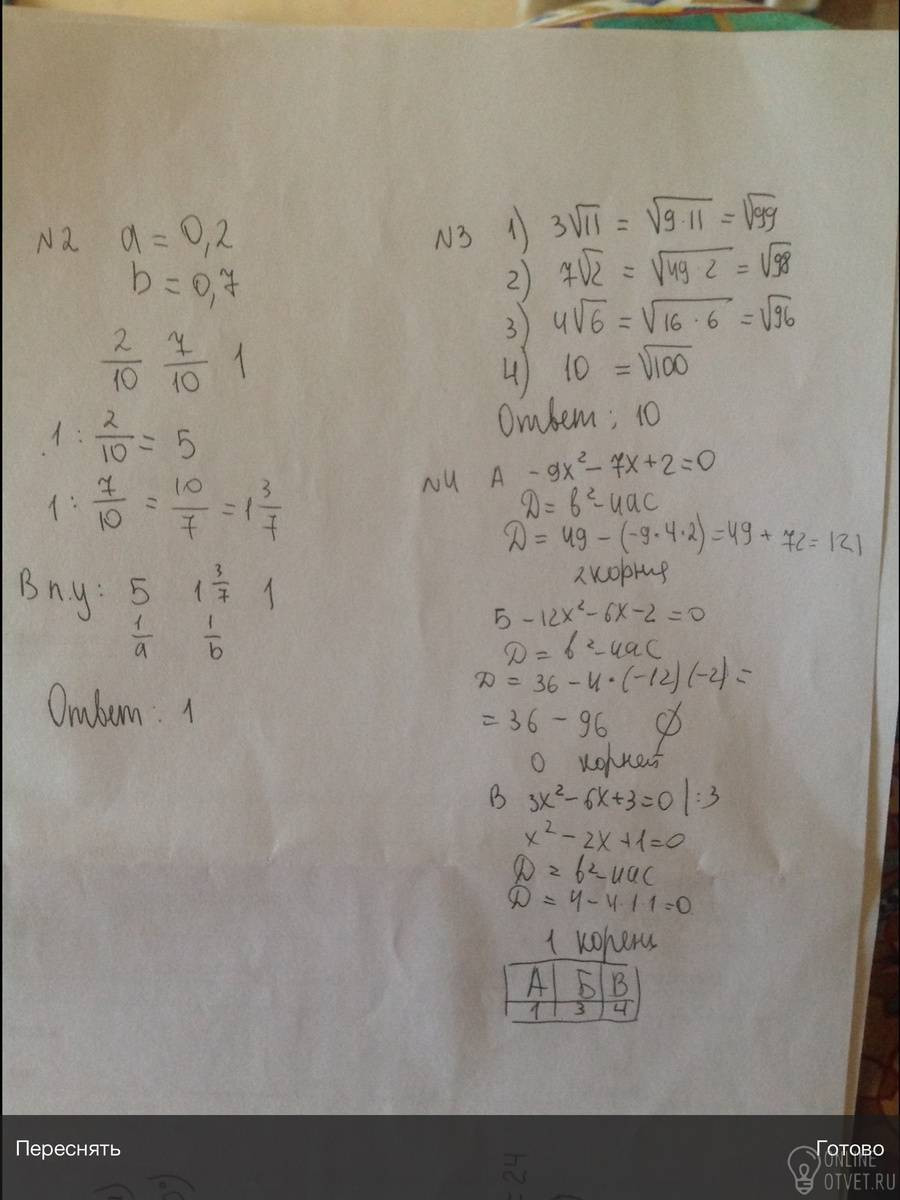 N2 a = 0,2
b = 0,7
2/10 7/10 1
1 : 2/10 = 5
1 : 7/10 = 10/7 = 1 3/7
В п.у: 5 1 3/7 1
1/a 1/b
Ответ: 1
N3 1) 3√11 = √9·11 = √99
2) 7√2 = √49·2 = √98
3) 4√6 = √16·6 = √96
4) 10 = √100
Ответ: 10
N4 А -9x²-7x+2=0
Д = b²-4ac
Д = 49 - (-9·4·2) = 49 + 72 = 121
2 корня
Б -12x²-6x-2=0
Д = b²-4ac
Д = 36 - 4·(-12)(-2) =
= 36 - 96 ∅
0 корней
В 3x²-6x+3=0 |:3
x²-2x+1=0
Д = b²-4ac
Д = 4-4·1·1=0
1 корень
А Б В
1 3 4
= 24
Переснять Готово
ONLINE
OTVET.RU